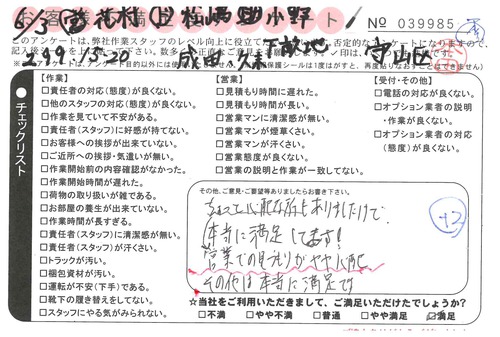 № 039985
このアンケートは、弊社作業スタッフのレベル向上に役立て
【作業】
□責任者の対応(態度)が良くない。
□他のスタッフの対応(態度)が良くない。
□作業を見ていて不安がある。
□責任者(スタッフ)に好感が持てない。
□お客様への挨拶が出来ていない。
□ご近所への挨拶・気遣いが無い。
□作業開始前の内容確認がなかった。
□作業開始時間が遅れた。
□荷物の取り扱いが雑である。
□お部屋の養生が出来ていない。
□作業時間が長すぎる。
□責任者(スタッフ)に清潔感が無い。
□責任者(スタッフ)が汗くさい。
□トラックが汚い。
□梱包資材が汚い。
□運転が不安(下手)である。
□靴下の履き替えをしてない。
□スタッフにやる気がみられない。
チェックリスト
【営業】
□見積もり時間に遅れた。
□見積もり時間が長い。
□営業マンに清潔感が無い。
□営業マンが煙草くさい。
□営業マンが汗くさい。
□営業態度が良くない。
□営業の説明と作業が一致してない。
【受付・その他】
□電話の対応が良くない。
□オプション業者の説明
・作業が良くない。
□オプション業者の対応
(態度)が良くない。
その他、ご意見・ご要望等ありましたらお書き下さい。
ちょっと心配な所もありましたけど
本当に満足してます!
営業での見積りがやや心配
その他は本当に満足です
☆当社をご利用いただきまして、ご満足いただけたでしょうか?
□不満 □やや不満 □普通 □やや満足 ☑満足